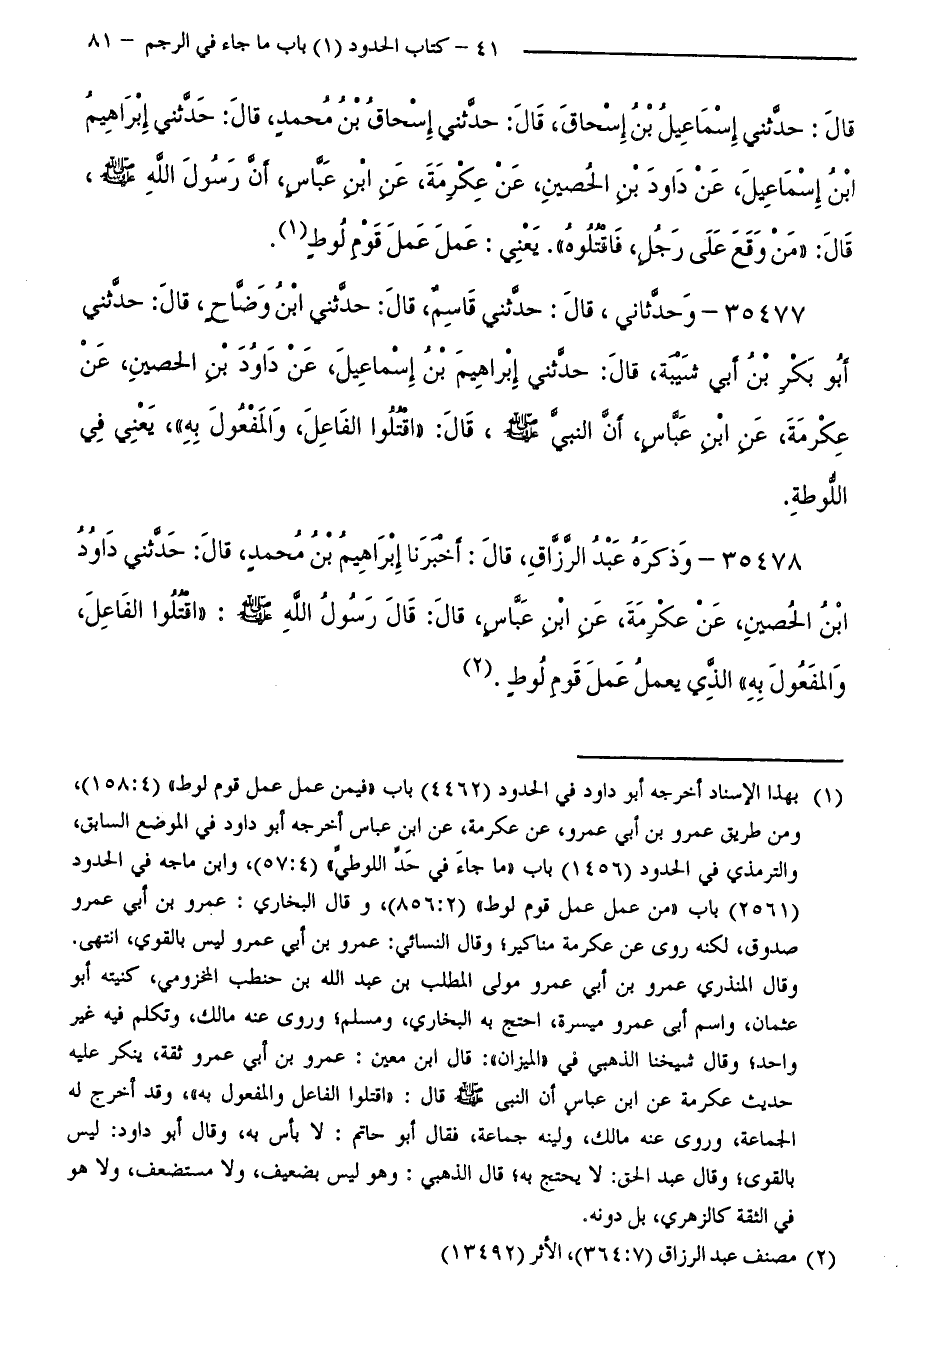 ٤١ - كتاب الحدود (١) باب ما جاء في الرجم - ٨١
قالَ : حدَّثني إِسْمَاعيلُ بْنُ إِسْحاقَ، قَالَ: حدَّثني إِسْحاقُ بْنُ مُحمدٍ، قالَ: حَدَّثني إِبْرَاهيمُ
ابْنُ إِسْمَاعيلَ، عَنْ دَاودَ بْنِ الحُصينِ، عَنْ عِكْرِمَةَ، عَنِ ابْنِ عَبَّاسٍ، أَنَّ رَسُولَ اللَّهِ ﷺ ،
قَالَ: «مَنْ وَقَعَ عَلَى رَجُلٍ، فَاقْتُلُوهُ». يَعْنِي : عَمَلَ عَملَ قَوْمِ لُوطٍ(١).
٣٥٤٧٧ - وَحدَّثاني ، قالَ : حدَّثني قَاسِمٌ، قَالَ: حدَّثني ابْنُ وَضَّاحٍ، قالَ: حدَّثني
أَبُو بَكْرِ بْنُ أَبي شَيْبَةَ، قالَ: حدَّثني إِبْراهِيمَ بْنُ إِسْماعيلَ، عَنْ دَاوُدَ بْنِ الحصينِ، عَنْ
عِكْرِمَةَ، عَنِ ابْنِ عَبَّاسٍ، أَنَّ النبيَّ ﷺ ، قَالَ: «اقْتُلُوا الفَاعِلَ، وَالمَفْعُولَ بِهِ»، يَعْنِي فِي
اللُّوطةِ.
٣٥٤٧٨ - وَذكرَهُ عَبْدُ الرَّزَّاقِ، قالَ : أَخْبَرَنَا إِبْرَاهِيمُ بْنُ مُحمدٍ، قالَ: حَدَّثني دَاوُدُ
ابْنُ الحُصينِ، عَنْ عكْرِمَةَ، عَنِ ابْنِ عَبَّاسٍ، قالَ: قَالَ رَسُولُ اللَّهِ ﷺ : «اقْتُلُوا الفَاعِلَ،
وَالمَفعُولَ بِهِ» الذَّي يعملُ عَمَلَ قَومِ لُوطٍ .(٢)
(١) بهذا الإسناد أخرجه أبو داود في الحدود (٤٤٦٢) باب «فيمن عمل عمل قوم لوط» (٤:١٥٨)،
ومن طريق عمرو بن أبي عمرو، عن عكرمة، عن ابن عباس أخرجه أبو داود في الموضع السابق،
والترمذي في الحدود (١٤٥٦) باب «ما جاءَ في حَدِّ اللوطيِّ» (٤:٥٧)، وابن ماجه في الحدود
(٢٥٦١) باب «من عمل عمل قوم لوط» (٢:٨٥٦)، و قال البخاري : عمرو بن أبي عمرو
صدوق، لكنه روى عن عكرمة مناكير؛ وقال النسائي: عمرو بن أبي عمرو ليس بالقوي، انتهى.
وقال المنذري عمرو بن أبي عمرو مولى المطلب بن عبد الله بن حنطب المخزومي، كنيته أبو
عثمان، واسم أبى عمرو ميسرة، احتج به البخاري، ومسلم؛ وروى عنه مالك، وتكلم فيه غير
واحد؛ وقال شيخنا الذهبي في «الميزان»: قال ابن معين : عمرو بن أبي عمرو ثقة، ينكر عليه
حديث عكرمة عن ابن عباس أن النبى ﷺ قال : «اقتلوا الفاعل والمفعول به»، وقد أخرج له
الجماعة، وروى عنه مالك، ولينه جماعة، فقال أبو حاتم : لا بأس به، وقال أبو داود: ليس
بالقوى؛ وقال عبد الحق: لا يحتج به؛ قال الذهبي : وهو ليس بضعيف، ولا مستضعف، ولا هو
في الثقة كالزهري، بل دونه.
(٢) مصنف عبد الرزاق (٧:٣٦٤)، الأثر (١٣٤٩٢)